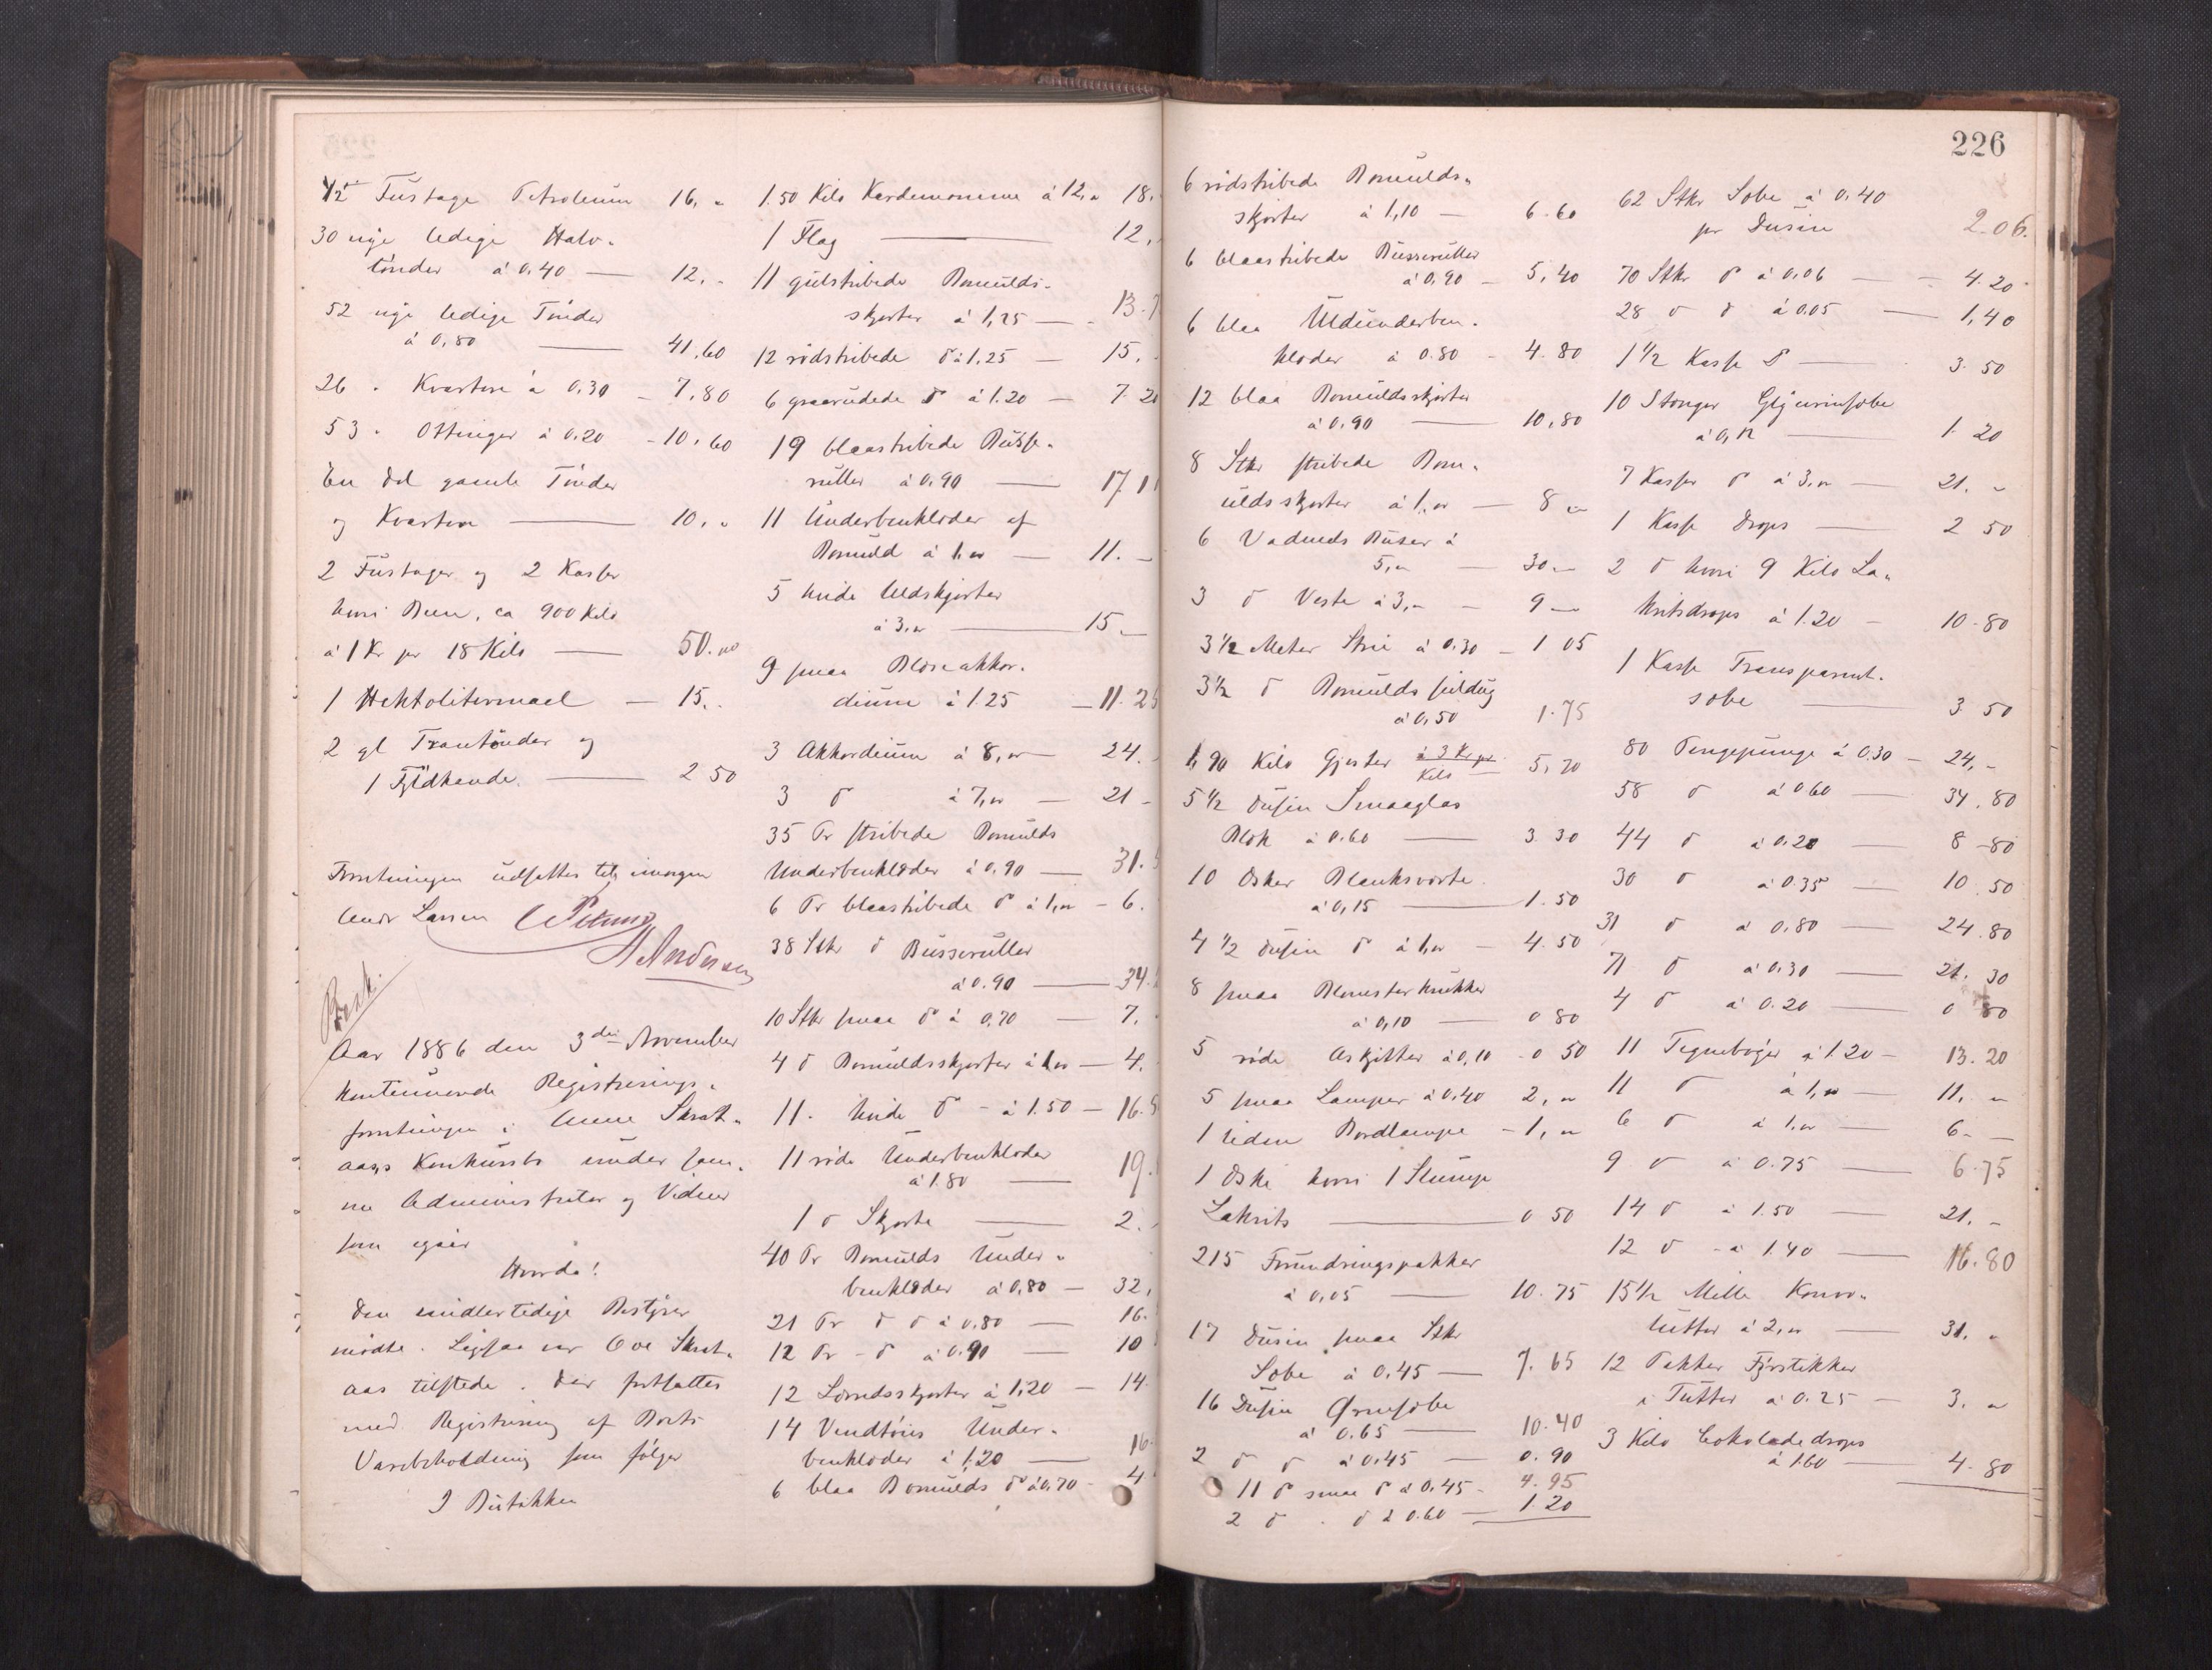 1/2 Fustage Petroleum 16, "
30 nye ledige Halv-
tönder á 0,40 — 12. "
52 nye ledige Tönder
á 0,80 — 41,60
26 " Kvarten á 0,30 - 7,80
53 " Ottinger á 0,20 - 10,60
En Del gamle Tönder
og Kvarten — 10, "
2 Fustager og 2 Kasser
hvori Been, ca 900 Kilo
á 1 Kr pr 18 Kilo — 50.00
1 Hektolitermaal — 15. "
2 gl Trantönder og
1 Fjldkande. — 2 50
Forretningen udsattes til imorgen
Andr Larsen
A Andersen
Besk.
Aar 1886 den 3die November
kontinuerede Registrerings-
forretningen i Anne Skrat-
aas's Konkursbo under sam-
me Administrator og Vidner
som igaar
Hvorda!
Den midlertidige Bestyrer
mødte. Ligesaa var Ove Skrat-
aas tilstede. Der fortsattes
med Registrering af Boets
Varebeholdning som følger
I Butikken
1.50 Kilo Kardemomme á 12, " 18.
1 Flag — 12,
11 gulstribede Bomulds-
skjorter á 1,25 — 13.7
12 rödstribede do á 1.25 — 15.
6 graarudede do á 1.20 — 7.20
19 blaastribede Busse-
ruller á 0,90 — 17 1
11 Underbenklæder af
Bomuld á 1,00 — 11. —
5 hvide Uldskjorter
á 3,00 — 15 —
9 smaa Blæseakkor-
dium á 1.25 — 11.25
3 Akkordium á 8,00 — 24.
3 do á 7,00 — 21 -
35 Pr stribede Bomulds
Underbenklæder á 0,90 — 31.5
6 Pr blaastribede do á 1,00 — 6.
38 Stkr do Busseruller
á 0.90 — 34.
10 Stkr smaa do á 0,70 — 7.
4 do Bomuldsskjorter á 1,00 — 4.
11. hvide do - á 1.50 — 16.5
11 röde Underbenklæder
á 1.80 — 19.
1 do Skjorte — 2.
40 Pr Bomulds Under-
benklæder á 0,80 — 32,
21 Pr do do á 0,80 — 16.
12 Pr - do á 0.90 — 10
12 Lærredsskjorter á 1,20 — 14.
14 Vendtöies Under-
benklæder á 1,20 — 16.
6 blaa Bomulds do á 0,70 - 4
226
6 rödstribede Bomulds-
skjorter á 1,10 — 6.60
6 blaastribede Busseruller
á 0,90 - 5,40
6 blaa Uldunderben-
klæder á 0.80 - 4.80
12 blaa Bomuldsskjorter
á 0,90 — 10,80
8 Stkr stribede Bom-
uldsskjorter á 1,00 — 8 "
6 Vadmels Buxer á
5,00 — 30 —
3 do Veste á 3,00 - 9 —
3 1/2 Meter Strie á 0.30 - 1 05
3 1/2 do Bomulds seildug
á 0,50 1.75
1,90 Kilo Gjester á 3 Kr pr
Kilo 5,70
5 1/2 Dusin Smaaglas
Blæk á 0.60 — 3.30
10 Æsker Blanksværte.
á 0,15 — 1.50
4 1/2 Dusin do á 1,00 - 4.50
8 smaa Blomster krukker
á 0,10 — 0 80
5 röde Askjitter á 0,10 - 0 50
5 smaa Lamper á 0.40 2, "
1 liden Bordlampe - 1, "
1 Æske hvori 1 Slumpe
Lakrits — 0 50
215 Forundringspakker
á 0,05 — 10.75
17 Dusin smaa Stkr
Sæbe á 0,45 — 7.65
16 Dusin Ørnesæbe
á 0.65 — 10.40
2 do do á 0.45 — 0.90
11 do smaa do á 0,45 - 4.95
2 do " do á 0.60 — 1.20
62 Stkr Sæbe á 0.40
pr Dusin 2.06.
70 Stkr do á 0.06 — 4.20
28 do do á 0.05 — 1,40
1 1/2 Kasse do — 3.50
10 Stænger Glycerinsæbe
á 0,12 — 1.20
7 Kasser do á 3,00 — 21. "
1 Kasse Drops — 2 50
2 do hvori 9 Kilo La-
kritsdrops á 1.20 - 10.80
1 Kasse Transparent-
sæbe — 3 50
80 Pengepunge á 0.30 - 24, -
58 do á 0.60 — 34.80
44 do á 0.20 — 8 80
30 do á 0.35 — 10.50
31 do á 0,80 — 24.80
71 do á 0.30 — 21.30
4 do á 0.20 — 0 80
11 Tegnebøger á 1.20 - 13.20
11 do á 1,00 — 11. "
6 do á 1,00 — 6. —
9 do á 0.75 — 6.75
14 do á 1.50 — 21. -
12 do - á 1.40 — 16.80
15 1/2 Mille Konvo-
lutter á 2,00 — 31. "
12 Pakker Fyrstikker
i Tutter á 0.25 - 3. "
3 Kilo Cokoladedrops
á 1.60 — 4.80